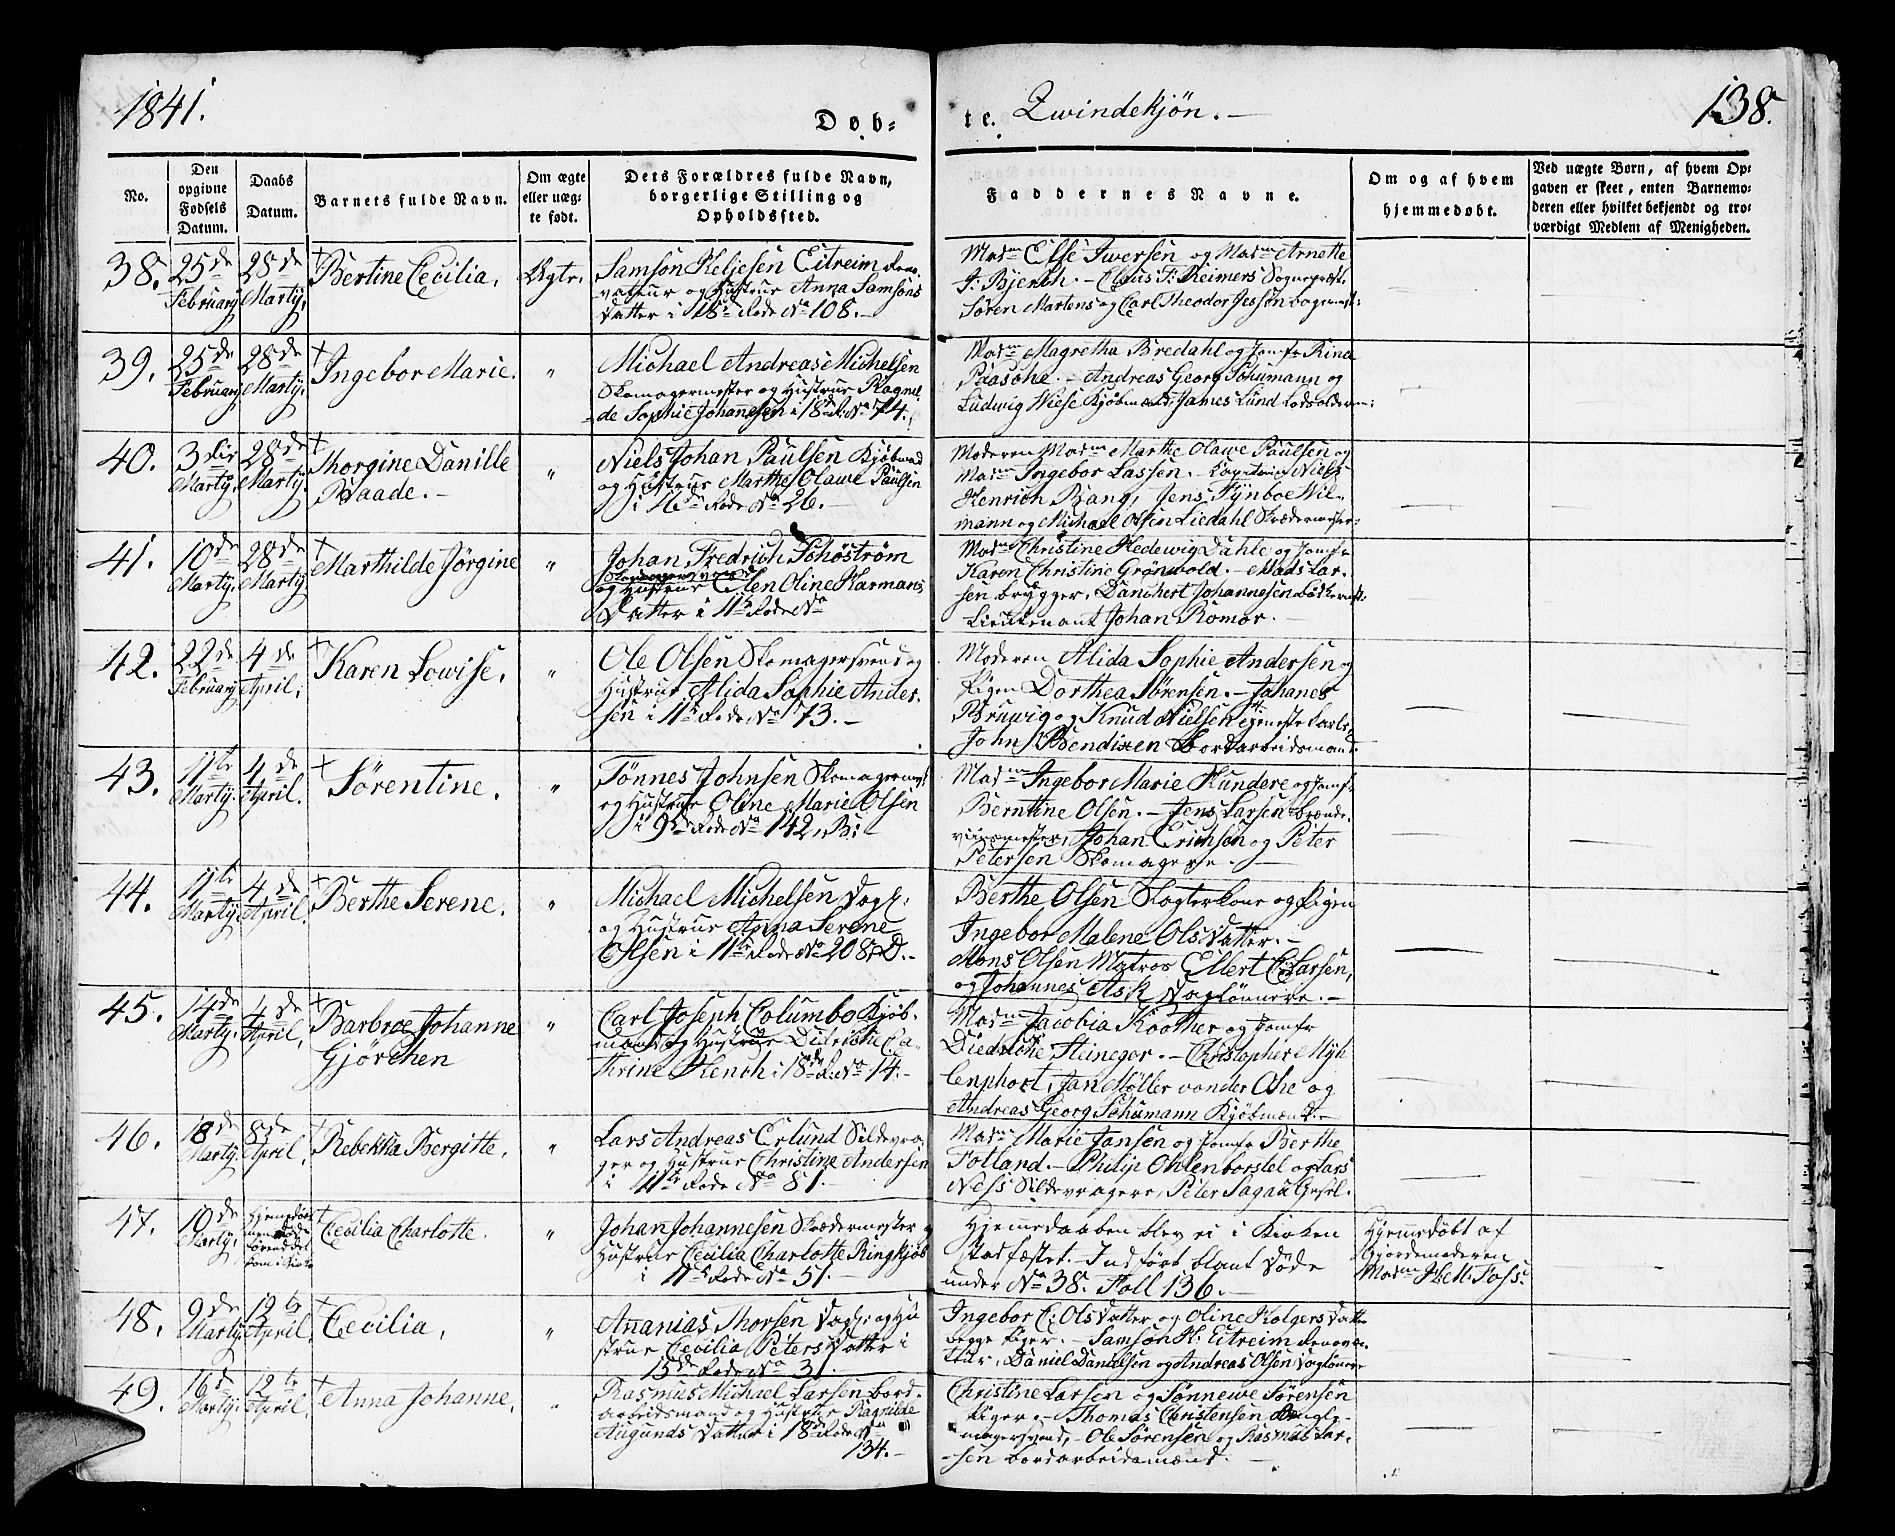 1841.
Døb-
te. Qvindekjøn.
138.
No.
Den opgivne Fødsels Datum.
Daabs Datum.
Barnets fulde Navn.
Om ægte eller uægte født.
Dets Forældres fulde Navn, borgerlige Stilling og Opholdssted.
Faddernes Navne.
Om og af hvem hjemmedøbt.
Ved uægte Børn, af hvem Op-
gaven er skeet, enten Barnemo-
deren eller hvilket bekjendt og tro-
værdigt Medlem af Menigheden.
38. 25de February 28de Martij. Bertine Cecilia. Ægte.
Samson Heljesen Eitreim Reno-
vateur og Hustrue Anna Samsons
Datter i 18de Rode No 108.
Madm Else Iversen og Madm Arnette
J. Bjerch. Claus F: Reimers Sognepræst.
Søren Martens og Carl Theodor Jessen
39. 25de February 28de Martij. Ingebor Marie. "
Michael Andreas Michelsen
Skomagermester og Hustrue Ragnil-
de Sophie Johannesen i 18de R. No 74.
Madm Magretha Bredahl og Jomfr Rina
Paasche. Andreas Georg Schumann og
Ludwig Wiese Kjøbmænd, James Lund
40. 3die Martij. 28de Martij. Thorgine Danille
Raade. "
Niels Johan Paulsen Kjøbmand
og Hustrue Marthe Olawe Paulsen
i 16de Rode No 26.
Moderen Madm Marthe Olawe Paulsen og
Madm Ingebor Lassen. Captain Niels
Henrich Bang, Jens Fynboe Wil-
mann og Michael Olsen Liedahl Skrædermester
41. 10de Martij. 28de Martij Marthilde Jørgine "
Johan Fredrich Schöström
og Hustrue Elen Oline Harmans
Datter i 11te Rode No
Madm Christine Hedewig Dahle og Jomfr
Karen Christine Grönwold. Mads Lar-
sen Brygger, Danckert Johannesen
Lieutenant Johan Romør.
42. 22de February 4de April. Karen Lowise. "
Ole Olsen Skomagersvend og
Hustrue Alida Sophie Ander-
sen i 11te Rode No 173.
Moderen Alida Sophie Andersen og
Pigen Dorthea Sørensen. Johanes
Bruwig og Knud Nielsen tjeneste Karle,
John Bendixen Bordarbeidsmand
43. 11te Martij. 4de April. Sørentine. "
Tønnes Johnsen Skomagermest
og Hustrue Oline Marie Olsen
i 9de Rode No 142, B:
Madm Ingebor Marie Kundere og Jomf.
Berntine Olsen. Jens Larsen Brænde-
viinsmester, Johan Erichsen og Peter
Petersen Skomagere.
44. 11te Martij 4de April. Berthe Serene. "
Michael Michelsen Dagl:
og Hustrue Anna Serene
Olsen i 11te Rode No 208, D.
Berthe Olsen Slagterkone og Pigen
Ingebor Malene Olsdatter.
Mons Olsen Matros Ellert C: Larsen,
og Johannes Ask Daglønnere.
45. 14de Martij. 4de April. Barbroe Johanne
Gjørchen "
Carl Joseph Columbo Kjøb-
mand og Hustrue Didriche Ca-
thrine Hench i 18de R. No 14.
Madm Jacobia Koother og Jomfr
Diedriche Heineger. Christopher Myh
lenphort, Jan Møller von der Ohe og
Andreas Georg Schumann Kjøbmænd.
46. 18de Martij 8de April. Rebekka Bergitte. "
Lars Andreas Erlund Sildevra-
ger og Hustrue Christine Andersen
i 11te Rode No 81.
Madm Marie Jansen og Jomfr Berthe
Folland. Philip Ohlenborstel og Lars
Ness Sildevragere, Peter Sagau Gesel.
47. 10de Martij. Cecilia Charlotte. "
Johan Johannesen Skrædermester og
Hustrue Cecilia Charlotte Ringkjøb
i 11te Rode No 51.
Hjemedaaben blev ei i Kirken
Stadfæstet. Indført blant Døde
under No 38. Foll 136.
Hjemmedøbt af
Gjordemoderen
Madm Foss.
48. 9de Martij 12te April. Cecilia. "
Ananias Thorsen Dagl: og Hu-
strue Cecilia Peters Datter i
15de Rode No 31.
Ingebor C: Ols Datter og Oline Holgers Datte
begge Piger. Samson H: Eitreim Renova-
teur, Daniel Danielsen og Andreas Olsen Dagløner
49. 16de Martij. 12te April. Anna Johanne. "
Rasmus Michael Larsen Bord-
arbeidsmand og Hustrue Ragnilde
Augunds Datter i 18de Rode No
134.
Christine Larsen og Sønnewe Sørensen
Piger. Thomas Christensen
magersvend, Ole Sørensen og Rasmus Lar-
sen bordarbeidsmænd.